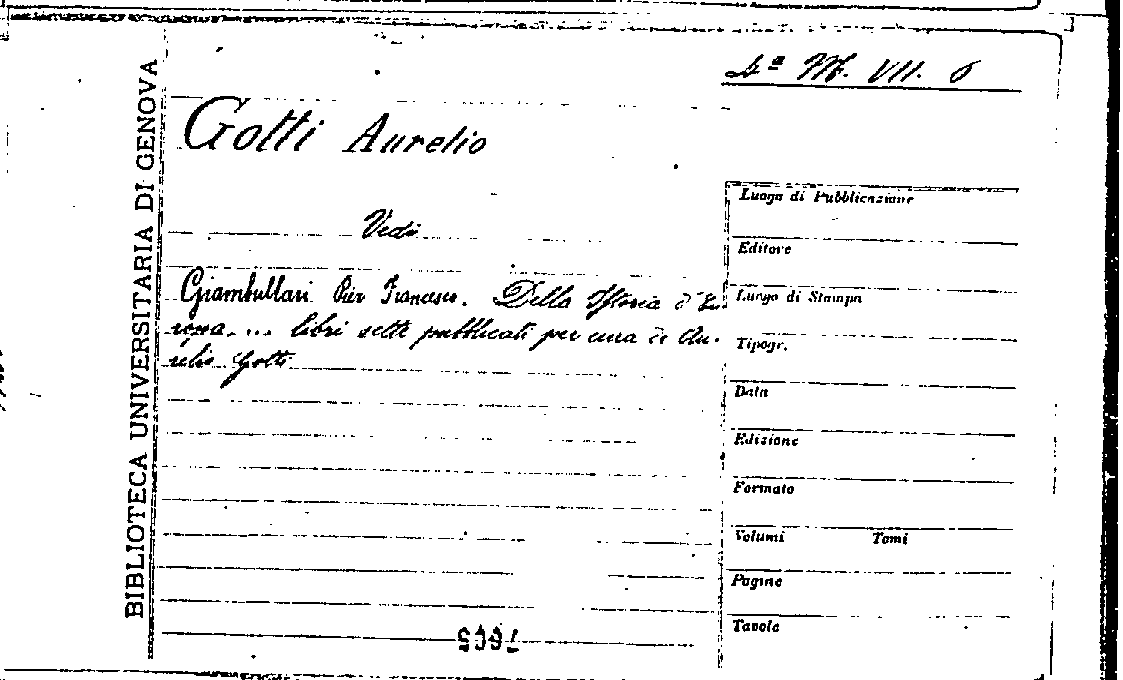 4ª M. VII. 6
BIBLIOTECA UNIVERSITARIA DI GENOVA
Gotti Aurelio
Vedi
Giambullari Pier Francesco. Della Istoria d'Eu-
ropa ... libri sette pubblicati per cura di Au-
relio Gotti
Luogo di Pubblicazione
Editore
Luogo di Stampa
Tipogr.
Data
Edizione
Formato
Volumi Tomi
Pagine
Tavole